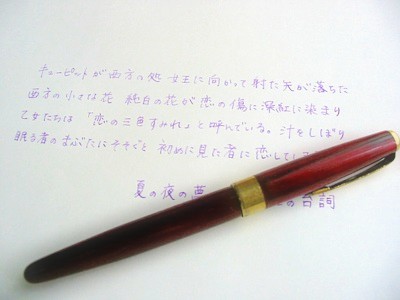 キューピットが西方の処女王に向かって射た矢が落ちた
西方の小さな花 純白の花が恋の傷に深紅に染まり
乙女たちは「恋の三色すみれ」と呼んでいる。汁をしぼり
眠る者のまぶたにそそぐと 初めに見た者に恋してし
夏の夜の夢 の台詞